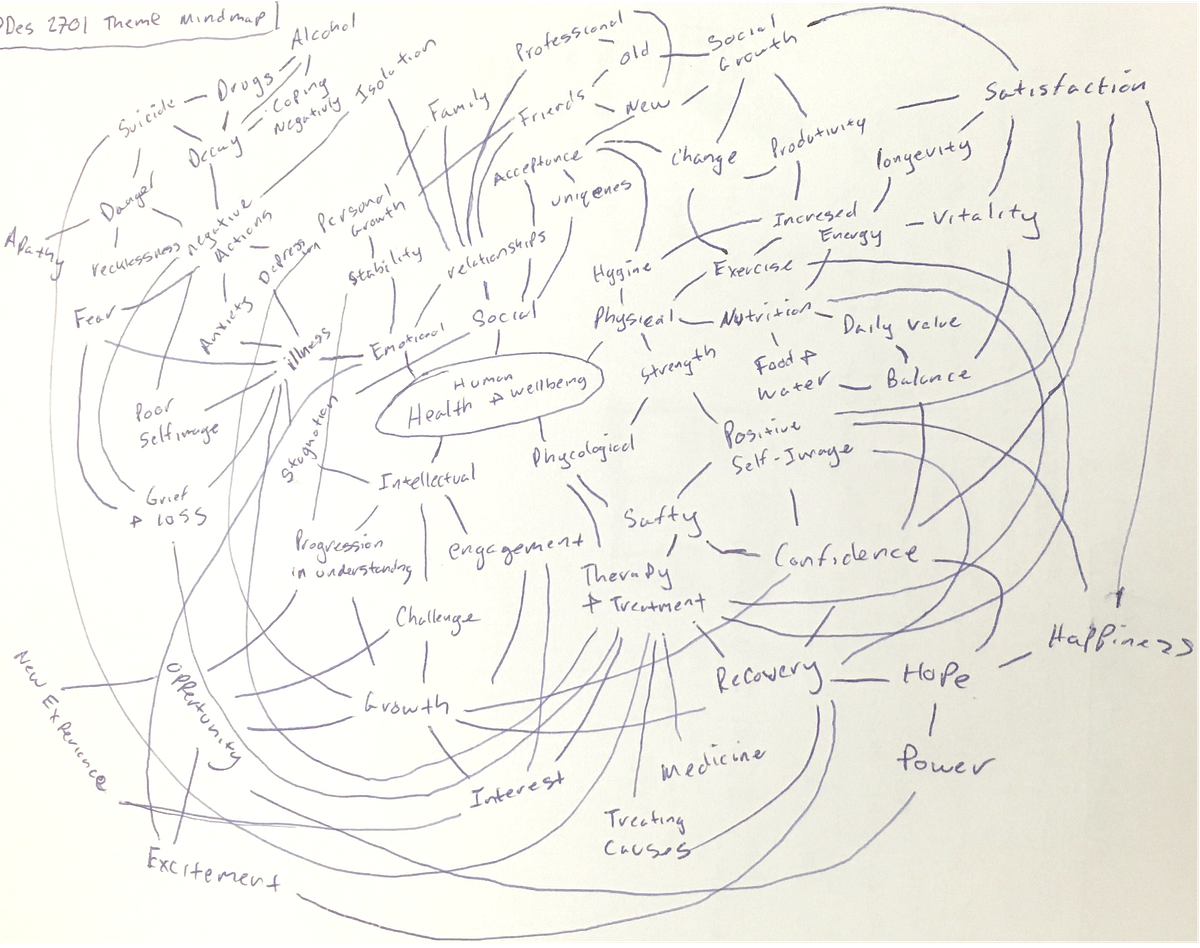 PDes 2701 Theme Mindmap
Alcohol
Professional
Old
Social
Growth
Isolution
Drugs
Coping
Negativly
Family
Friends
New
Satisfaction
Suicide
Decay
Acceptance
Change
Produtivity
longevity
Danger
uniqenes
Personal
Growth
negative
Actions
Incresed
Energy
Vitality
Apathy
recklessness
Depress
ion
Stability
relationships
Hygine
Exercise
Fear
Anxiety
illness
Emotional
Social
Physical
Nutrition
Daily value
Human
Health & wellbeing
Strength
Food &
water
Balance
Poor
Selfimage
Stagnation
Intellectual
Phycological
Positive
Self-Image
Grief
& Loss
Safty
Progression
in understanding
engagement
Confidence
Therapy
& Treatment
Challenge
Happiness
New Experiance
Oppertunity
Growth
Recovery
Hope
Interest
Medicine
Power
Treating
Causes
Excitement